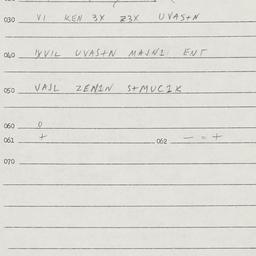 030 VI KEN 3X Z3X UVAS+N
040 IVVIL UVAS+N MAJNI ENT
050 VAJL ZENIN S+MUCIK
060 0
061 + 062 - = +
070